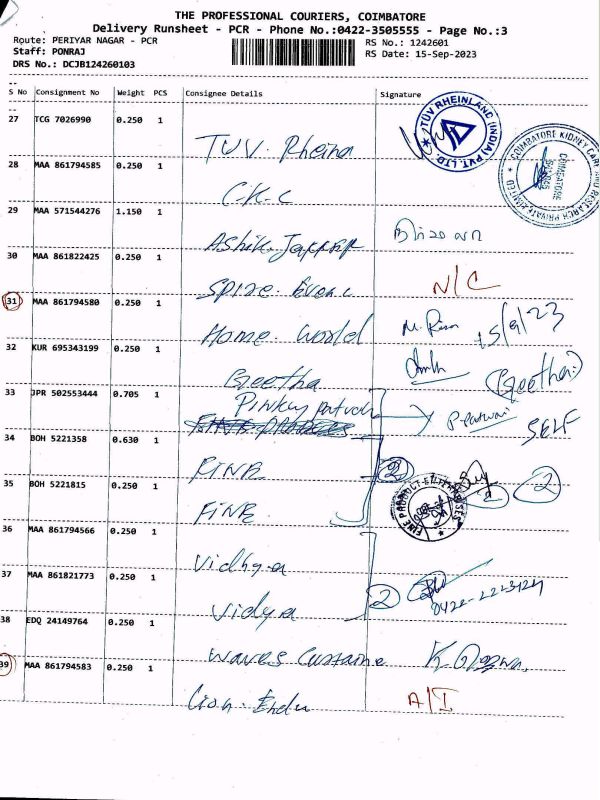 THE PROFESSIONAL COURIERS, COIMBATORE
Delivery Runsheet - PCR - Phone No.:0422-3505555 - Page No.:3
Route: PERIYAR NAGAR - PCR
Staff: PONRAJ
DRS No.: DCJB124260103
RS No.: 1242601
RS Date: 15-Sep-2023
S No Consignment No Weight PCS Consignee Details Signature
27 TCG 7026990 0.250 1
TUV. Rheina
TÜV RHEINLAND (INDIA) PVT. LTD
28 MAA 861794585 0.250 1
C.K.C
COIMBATORE KIDNEY CARE AND RESEARCH PRIVATE LIMITED
COIMBATORE
29 MAA 571544276 1.150 1
Ashik
30 MAA 861822425 0.250 1
Spize
N/C
31 MAA 861794580 0.250 1
Home World
15/9/23
32 KUR 695343199 0.250 1
Geetha
(Geetha)
33 JPR 502553444 0.705 1
Pinkey
SELF
34 BOH 5221358 0.630 1
FINE
2
2
2
35 BOH 5221815 0.250 1
FINE
FINE PRODUCT ENTERPRISES
36 MAA 861794566 0.250 1
Vidhya
37 MAA 861821773 0.250 1
Vidya
2
38 EDQ 24149764 0.250 1
Waves
39 MAA 861794583 0.250 1
Lion.
A/I